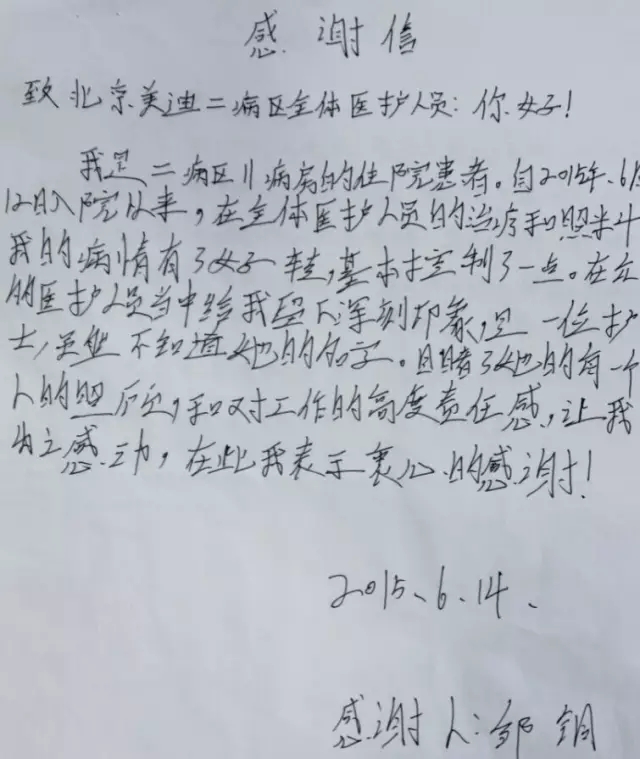 感谢信
致北京美迪二病区全体医护人员：你好！
我是二病区11病房的住院患者。自2015年.6月
12日入院以来，在全体医护人员的治疗和照料
我的病情有了好转，基本控制了一点。在众
的医护人员当中给我留下深刻印象，是一位护
士，虽然不知道她的名字。目睹了她的有一个
人的照顾，和对工作的高度责任感，让我
为之感动，在此我表示衷心的感谢！
2015.6.14.
感谢人：邹